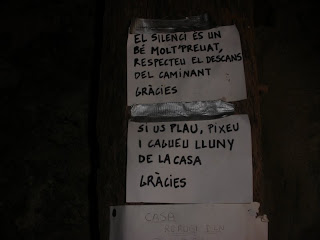 EL SILENCI ÉS UN
BÉ MOLT PREUAT,
RESPECTEU EL DESCANS
DEL CAMINANT
GRÀCIES
SI US PLAU, PIXEU
I CAGUEU LLUNY
DE LA CASA
GRÀCIES
CASA